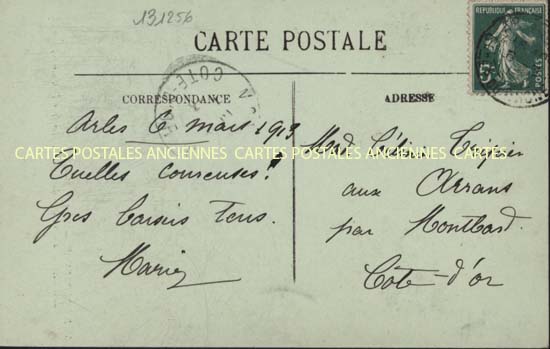 131256
CARTE POSTALE
REPUBLIQUE FRANÇAISE
5c
POSTES
COTE-D'OR
CORRESPONDANCE
ADRESSE
Arles 6 mars 1913
Quelles coureuses!
Gros baisers tous.
Marie
CARTES POSTALES ANCIENNES CARTES POSTALES ANCIENNES CARTES
aux Arrans
par Montbard.
Côte-d'or